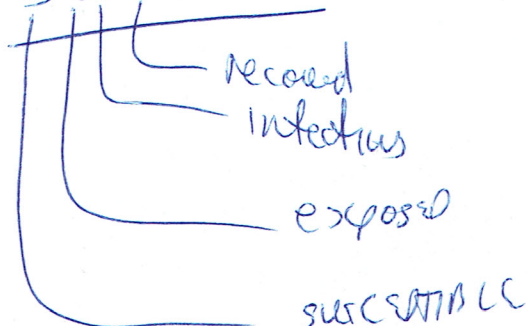 recovered
infectious
exposed
SUSCEPTIBLE